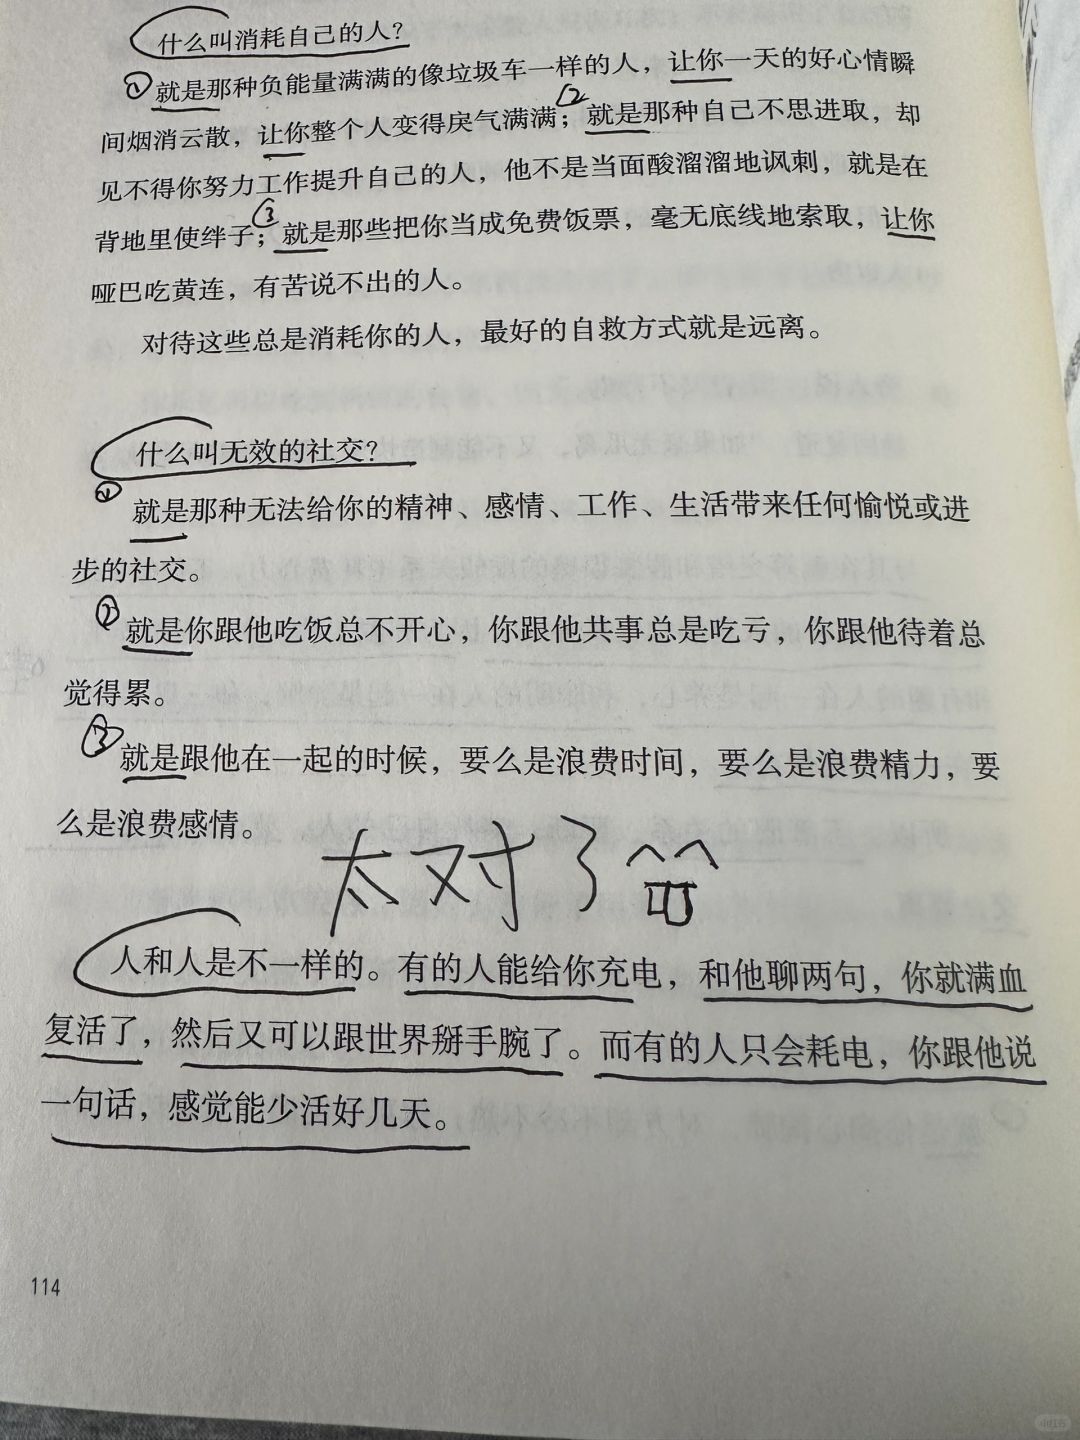 什么叫消耗自己的人？
①就是那种负能量满满的像垃圾车一样的人，让你一天的好心情瞬
间烟消云散，让你整个人变得戾气满满；②就是那种自己不思进取，却
见不得你努力工作提升自己的人，他不是当面酸溜溜地讽刺，就是在
背地里使绊子；③就是那些把你当成免费饭票，毫无底线地索取，让你
哑巴吃黄连，有苦说不出的人。
对待这些总是消耗你的人，最好的自救方式就是远离。
什么叫无效的社交？
①就是那种无法给你的精神、感情、工作、生活带来任何愉悦或进
步的社交。
②就是你跟他吃饭总不开心，你跟他共事总是吃亏，你跟他待着总
觉得累。
③就是跟他在一起的时候，要么是浪费时间，要么是浪费精力，要
么是浪费感情。
太对了
人和人是不一样的。有的人能给你充电，和他聊两句，你就满血
复活了，然后又可以跟世界掰手腕了。而有的人只会耗电，你跟他说
一句话，感觉能少活好几天。
114
小红书